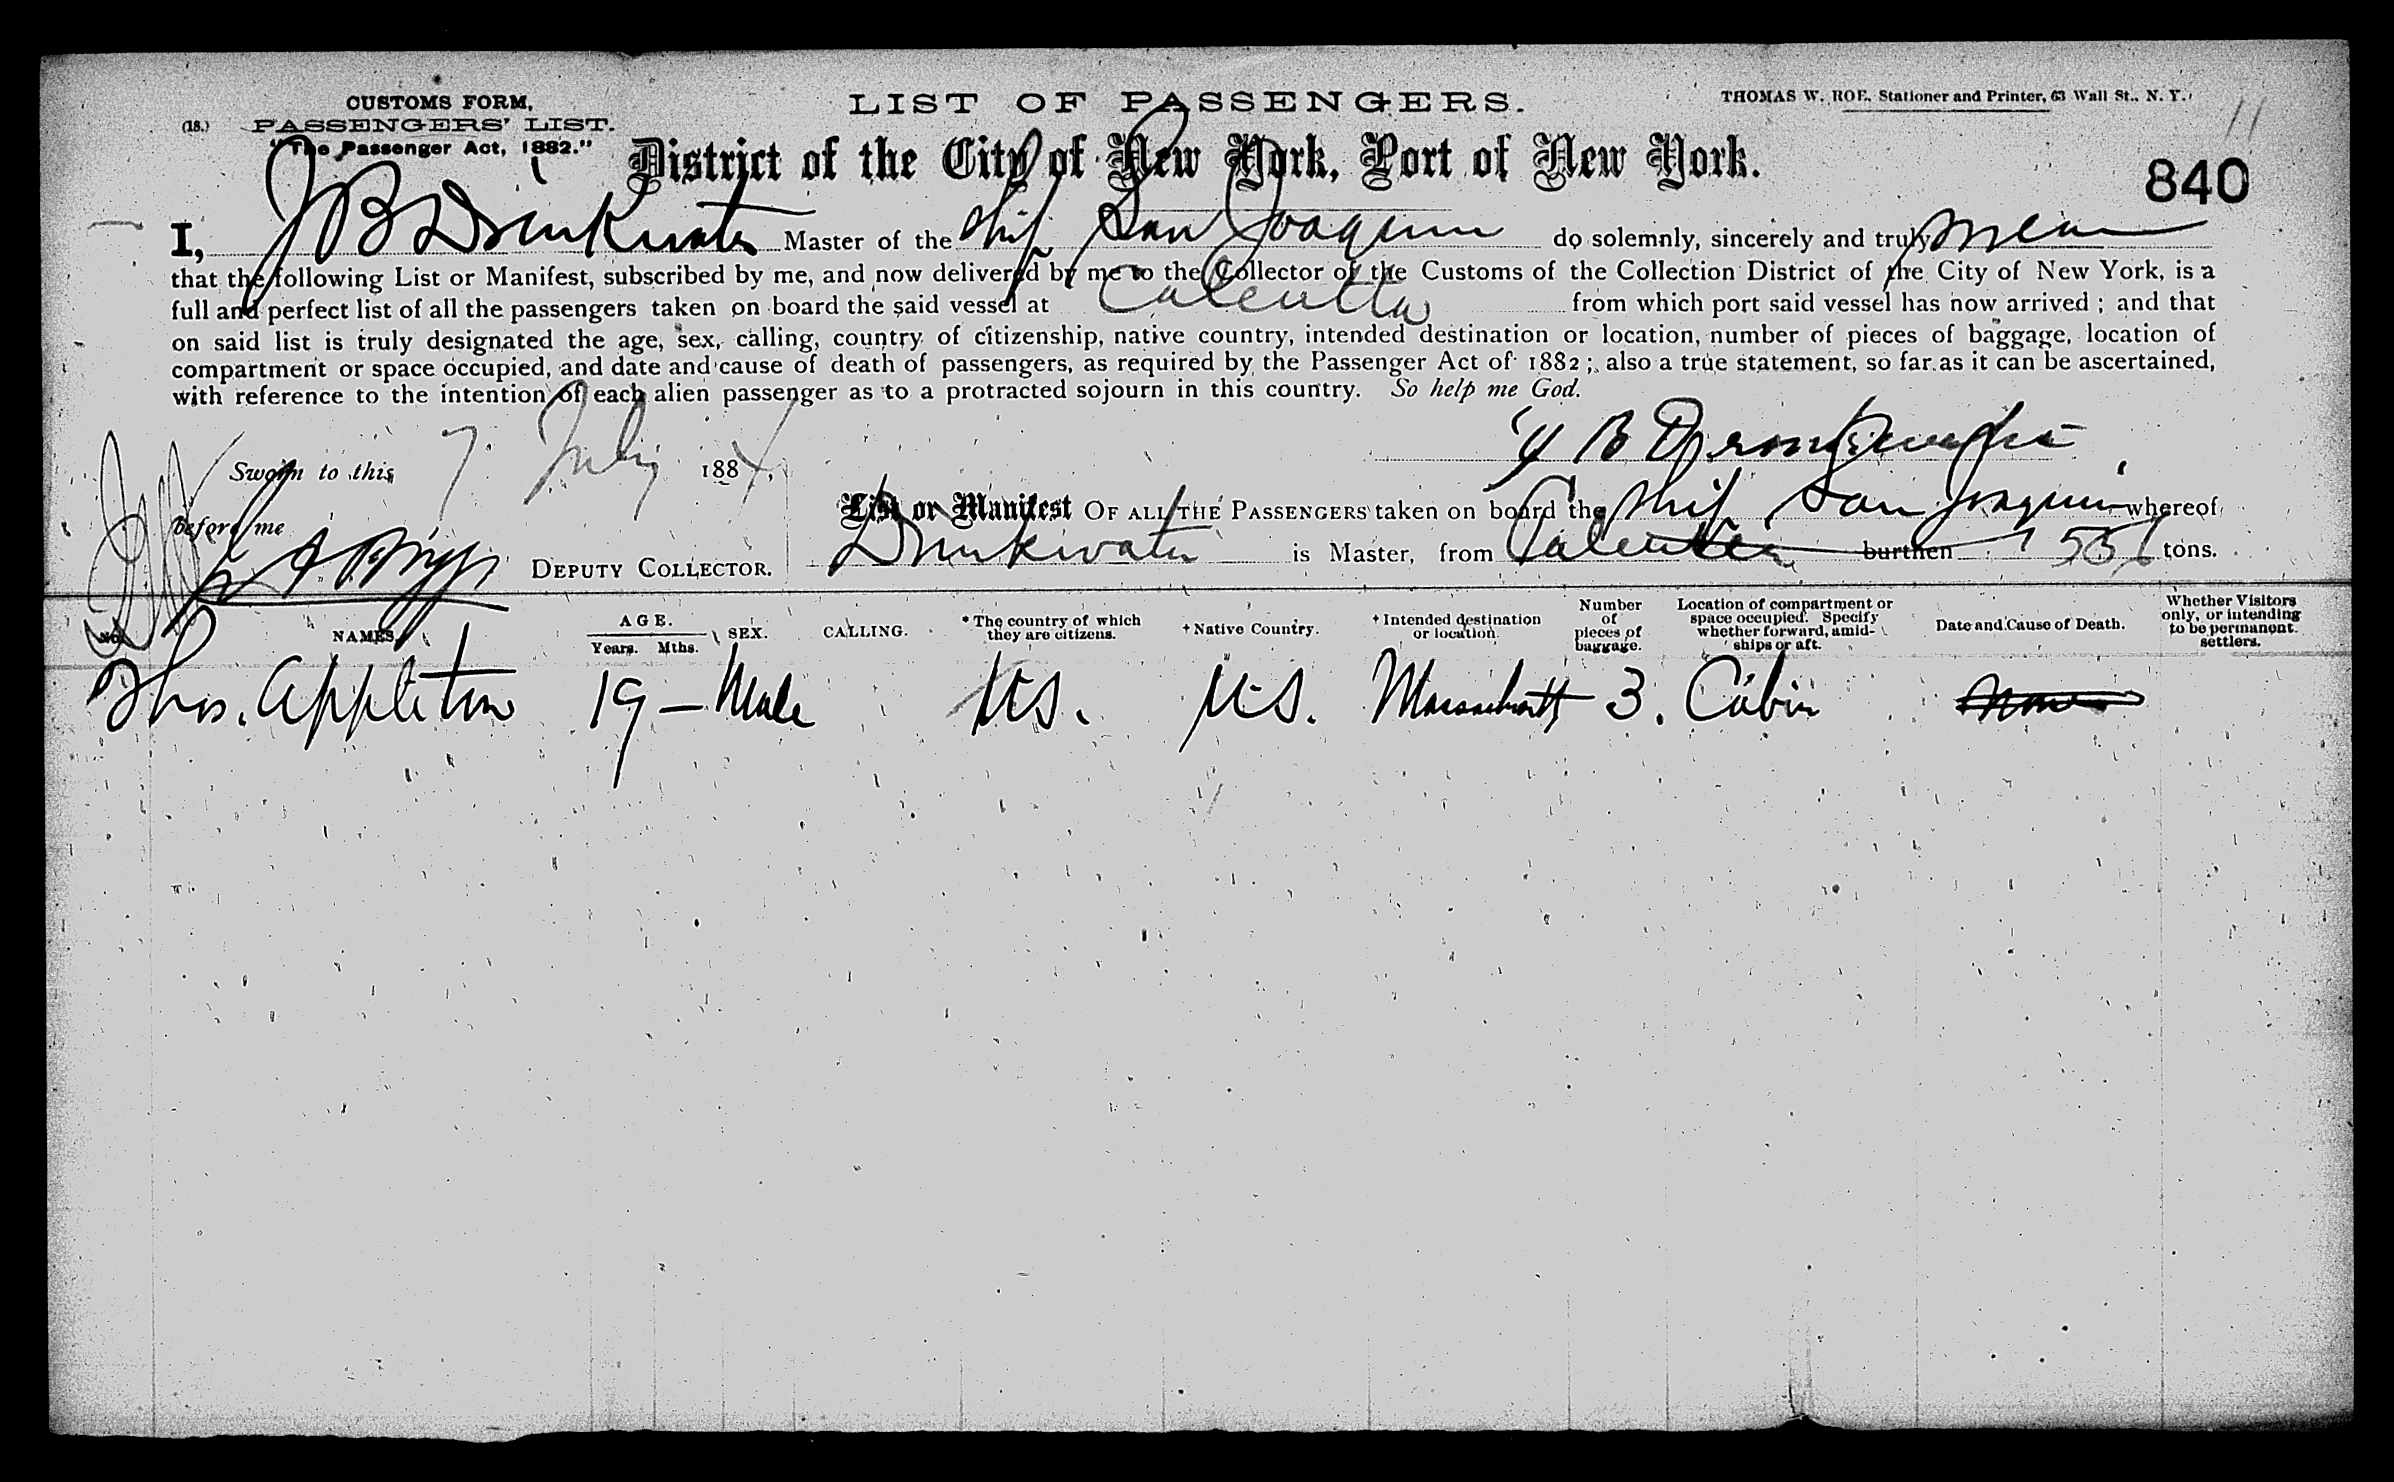 CUSTOMS FORM,
(18.) PASSENGERS' LIST.
"The Passenger Act, 1882."
LIST OF PASSENGERS.
THOMAS W. ROE, Stationer and Printer, 63 Wall St., N. Y.
11
District of the City of New York, Port of New York.
840
I, J B Drinkwater Master of the Ship San Joaquin do solemnly, sincerely and truly swear
that the following List or Manifest, subscribed by me, and now delivered by me to the Collector of the Customs of the Collection District of the City of New York, is a
full and perfect list of all the passengers taken on board the said vessel at Calcutta from which port said vessel has now arrived ; and that
on said list is truly designated the age, sex, calling, country of citizenship, native country, intended destination or location, number of pieces of baggage, location of
compartment or space occupied, and date and cause of death of passengers, as required by the Passenger Act of 1882 ; also a true statement, so far as it can be ascertained,
with reference to the intention of each alien passenger as to a protracted sojourn in this country. So help me God.
J B Drinkwater
Sworn to this 7 July 188
before me
Briggs DEPUTY COLLECTOR.
List or Manifest OF ALL THE PASSENGERS taken on board the Ship San Joaquin whereof
Drinkwater is Master, from Calcutta burthen tons.
No. NAMES. AGE. Years. Mths. SEX. CALLING. * The country of which they are citizens. † Native Country. † Intended destination or location. Number of pieces of baggage. Location of compartment or space occupied. Specify whether forward, amid-ships or aft. Date and Cause of Death. Whether Visitors only, or intending to be permanent settlers.
Thos. Appleton 19 — Male U.S. U.S. Massachusetts 3. Cabin None